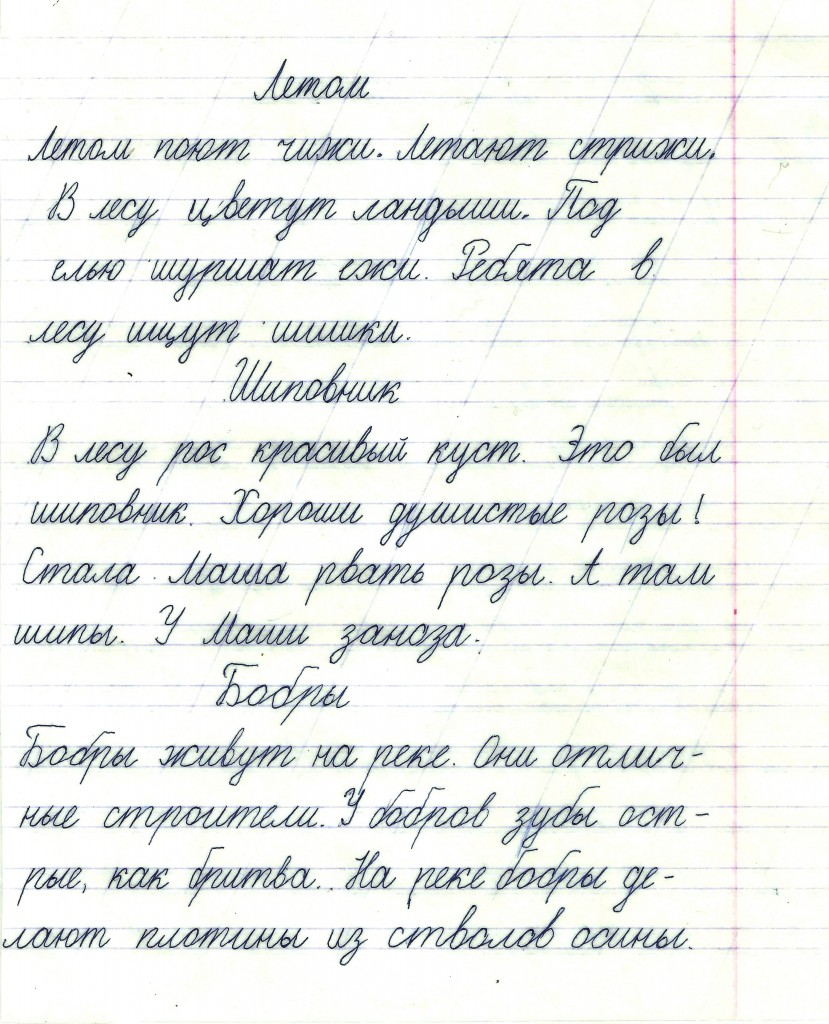 Летом
Летом поют чижи. Летают стрижи.
В лесу цветут ландыши. Под
елью шуршат ежи. Ребята в
лесу ищут шишки.
Шиповник
В лесу рос красивый куст. Это был
шиповник. Хороши душистые розы!
Стала Маша рвать розы. А там
шипы. У Маши заноза.
Бобры
Бобры живут на реке. Они отлич-
ные строители. У бобров зубы ост-
рые, как бритва. На реке бобры де-
лают плотины из стволов осины.